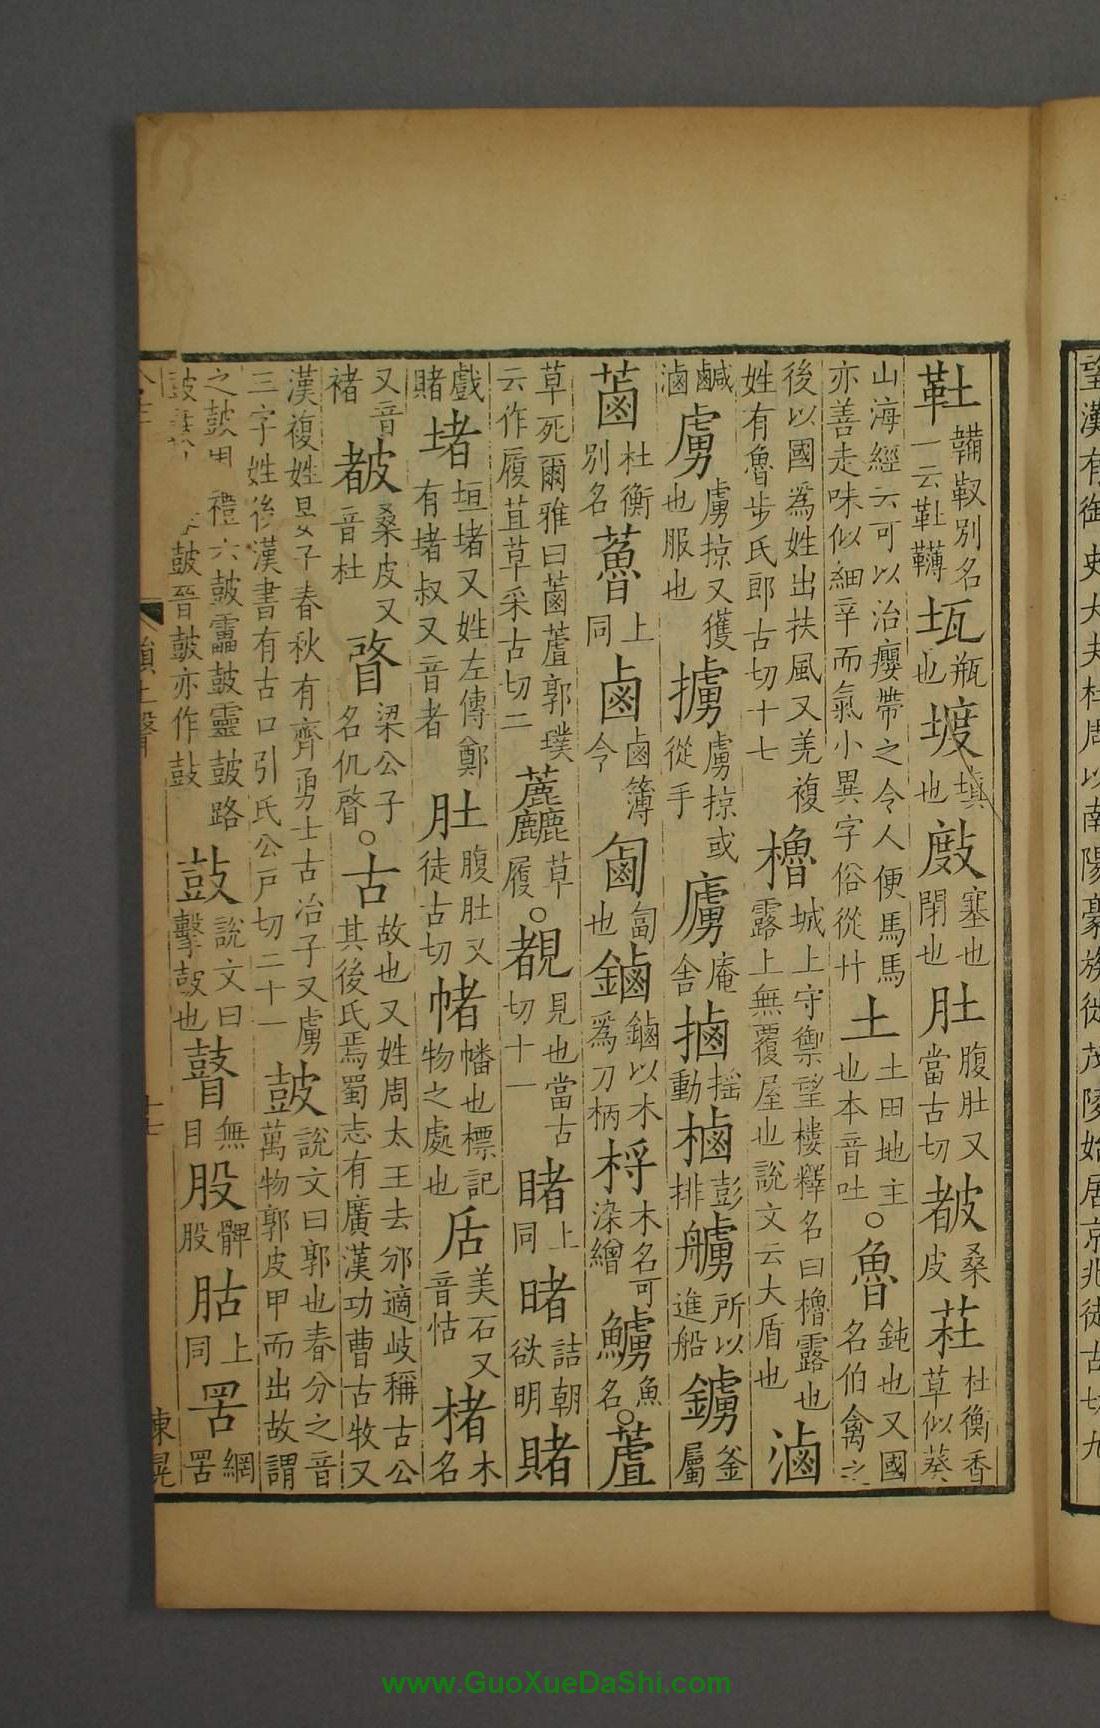 𩊬鞴靫別名一云𩊬鞾瓳瓶也塳填也敱塞也閉也肚腹肚又當古切𢾅桑皮荰杜衡香草似葵
山海經云可以治癭帶之令人便馬馬亦善走味似細辛而氣小異字俗從廾土土田地主也本音吐○魯鈍也又國名伯禽之
後以國爲姓出扶風又羌複姓有魯步氏郎古切十七櫓城上守禦望樓釋名曰櫓露也露上無覆屋也說文云大盾也滷
鹹滷虜虜掠又獲也服也擄虜掠或從手廘庵舍㯭搖動樐彭排艣所以進船鐪釜屬
蓾杜衡別名蘑上同鹵鹵簿令㔧㔩也鏀鏀以木爲刀柄桴木名可染繒鱸魚名○蘆
草死爾雅曰蓾蘆郭璞云作履苴草采古切二麤草履○覩見也當古切十一睹上同暏詰朝欲明賭
戲賭堵垣堵又姓左傳鄭有堵叔又音者肚腹肚又徒古切帾幡也標記物之處也㕆美石又音怙楮木名
又音褚𢾅桑皮又音杜䁈梁公子名仉䁈○古故也又姓周太王去邠適岐稱古公其後氏焉蜀志有廣漢功曹古牧又
漢複姓晏子春秋有齊勇士古冶子又虜三字姓後漢書有古口引氏公戸切二十一鼓說文曰郭也春分之音萬物郭皮甲而出故謂
之鼓周禮六鼓靁鼓靈鼓路鼓鼖鼓鼛鼓晉鼓亦作皷鼔說文曰擊鼓也瞽無目股髀股𦙶上同罟網罟
韻上聲
十七
東晃
望漢有御史大夫杜周以南陽豪族徙茂陵始居京兆徒古切九
www.GuoXueDaShi.com